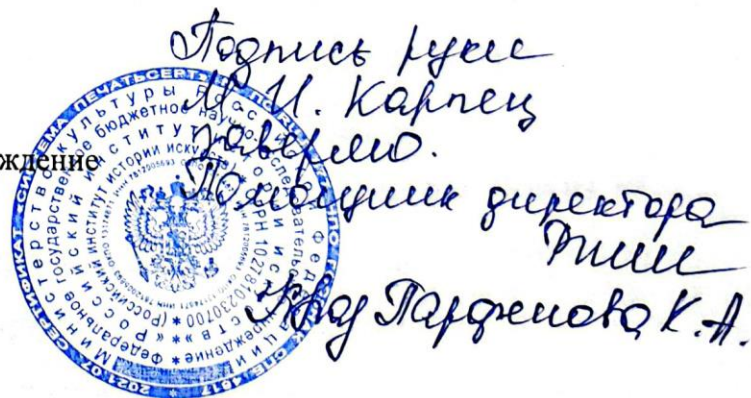 Подпись руки
М. И. Карпец
заверяю.
Помощник директора
РИИИ
Парфенова К.А.
ждение
Министерство культуры Российской Федерации
Федеральное государственное бюджетное научно-исследовательское учреждение
«Российский институт истории искусств»
(Российский институт истории искусств) * ОГРН 1027810230700